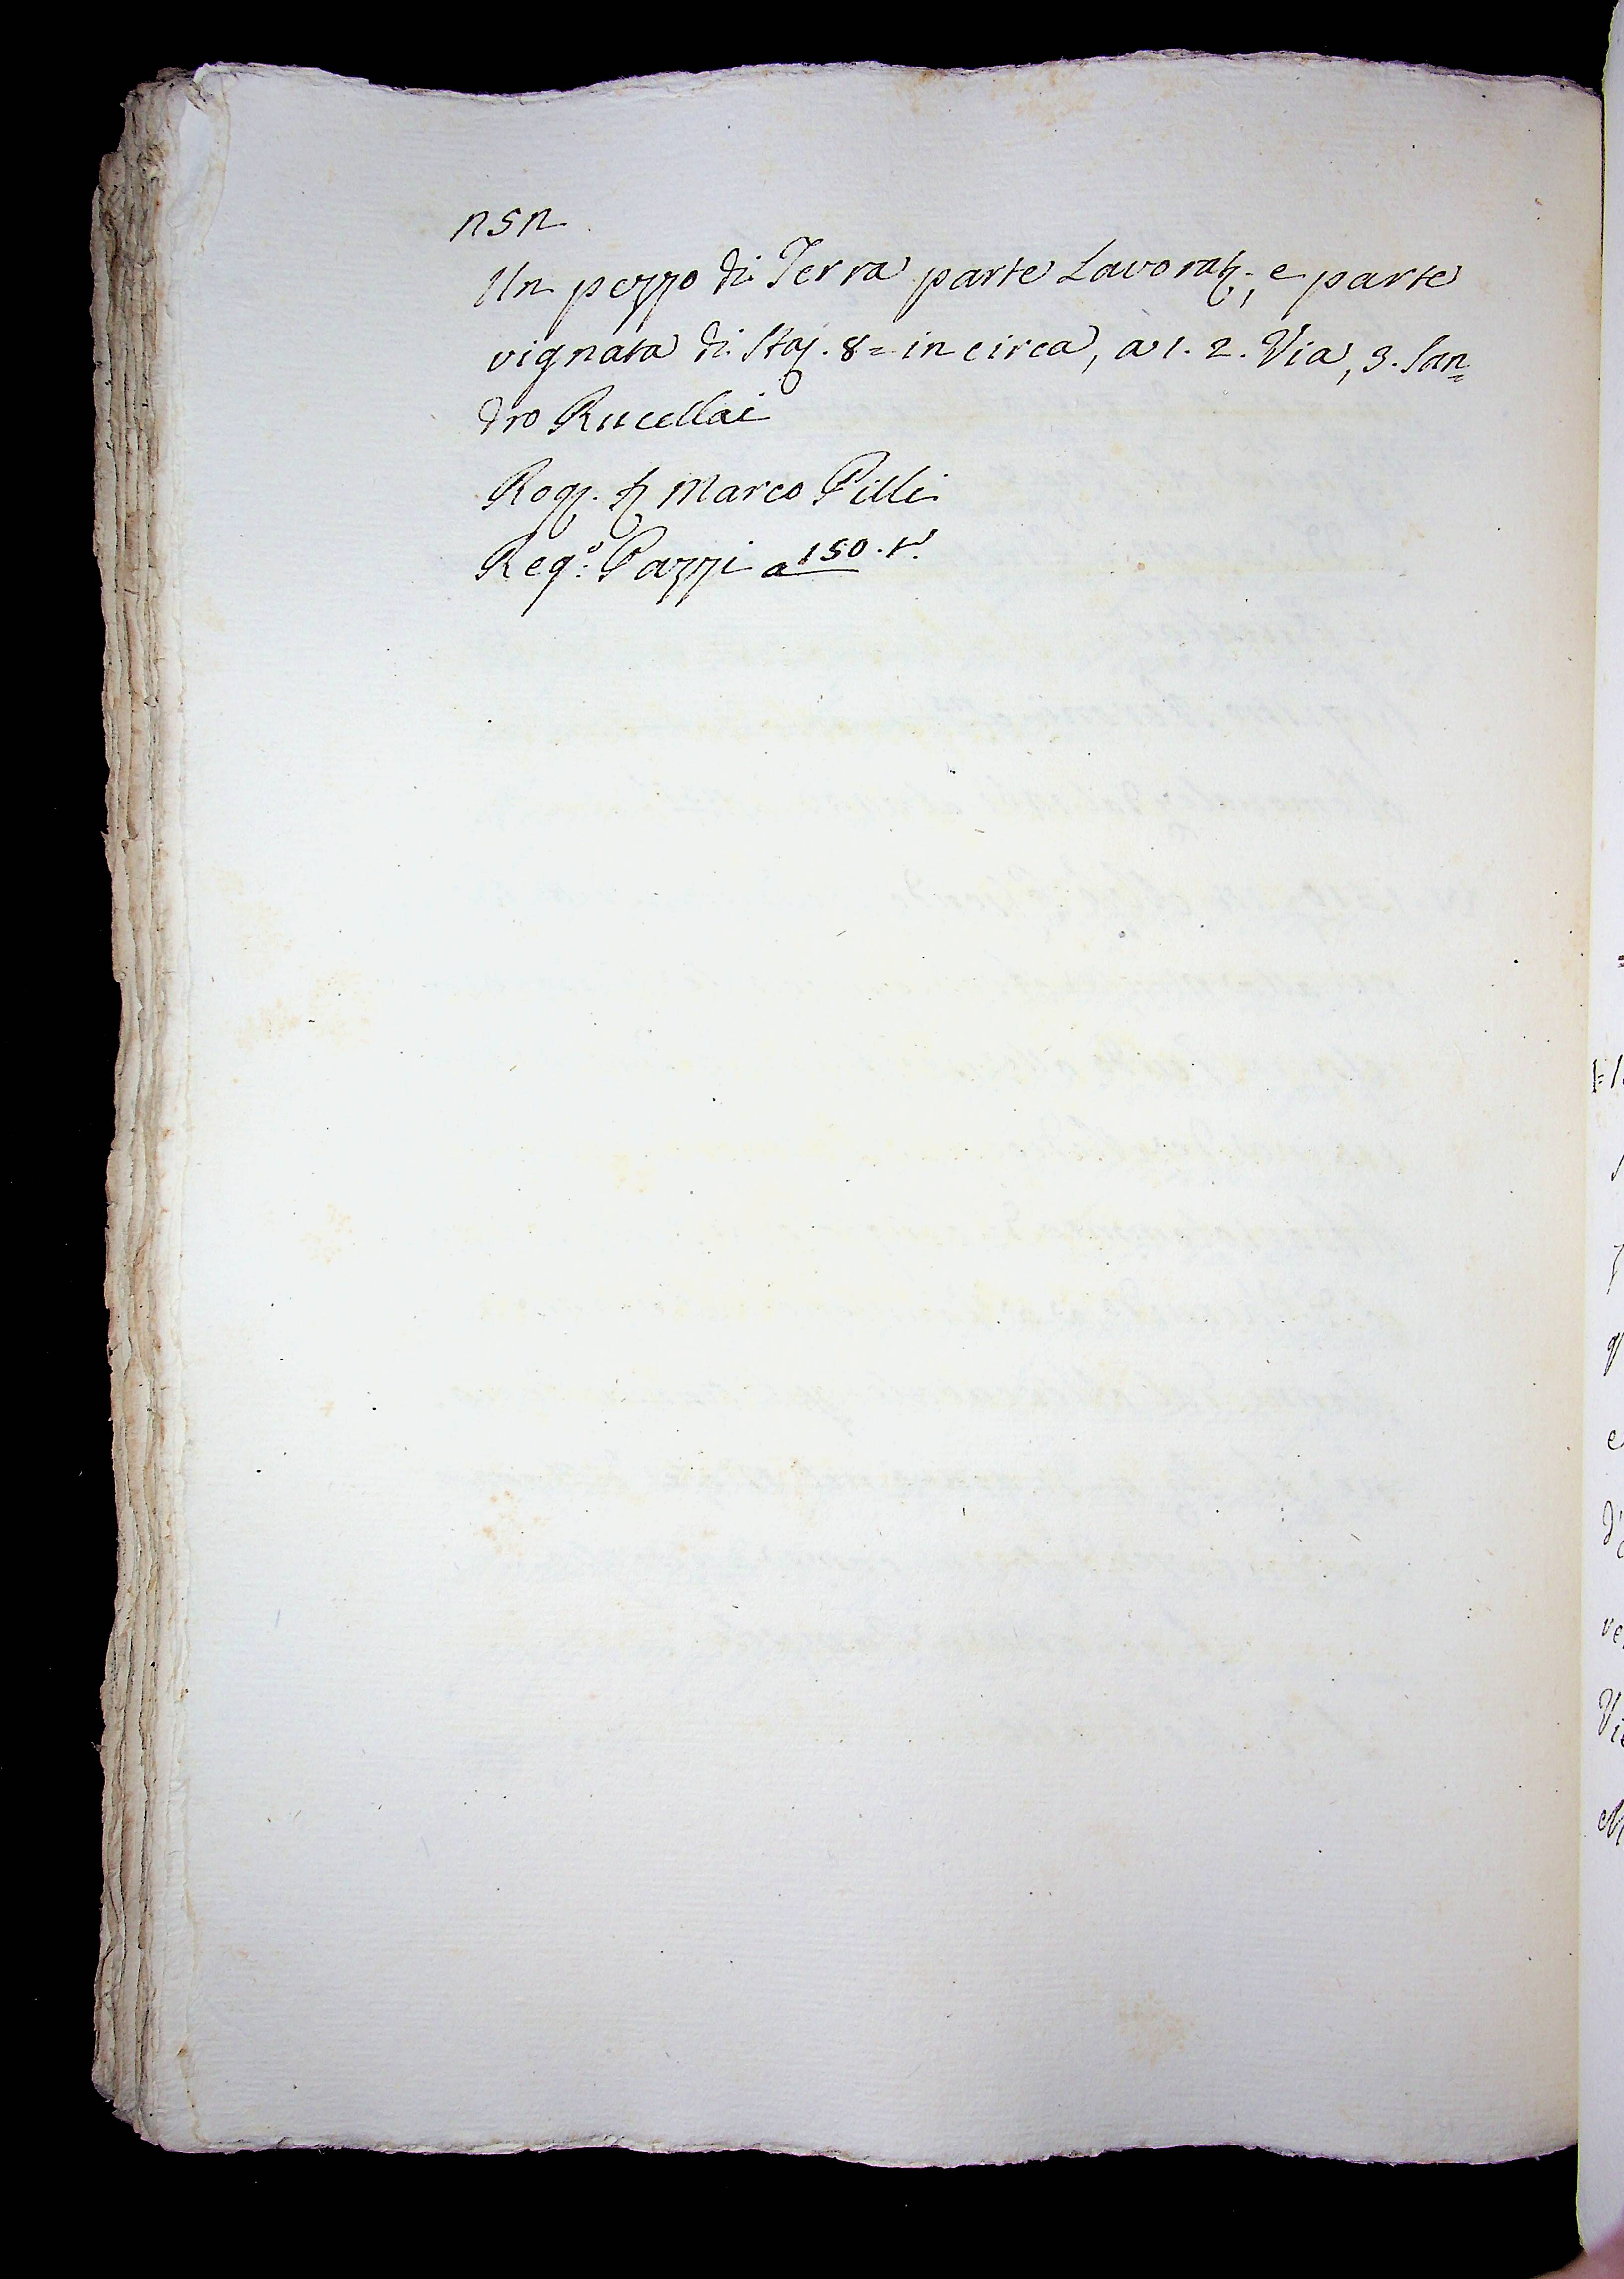 nsn
Un pezzo di Terra parte Lavorat:, e parte
vignata di Staj. 8= in circa, a 1. 2. Via, 3. San=
dro Rucellai
Rog. p Marco Pilli
Reg.º: Pazzi a 150. t.